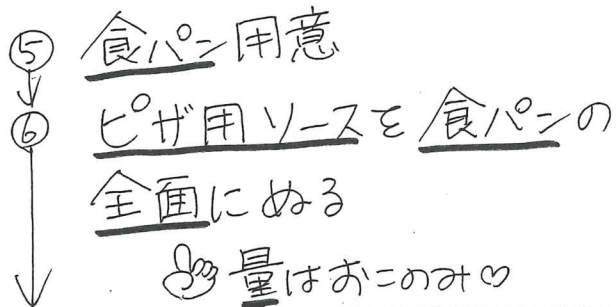 ⑤ 食パン用意
⑥ ピザ用ソースを食パンの
全面にぬる
量はおこのみ♡